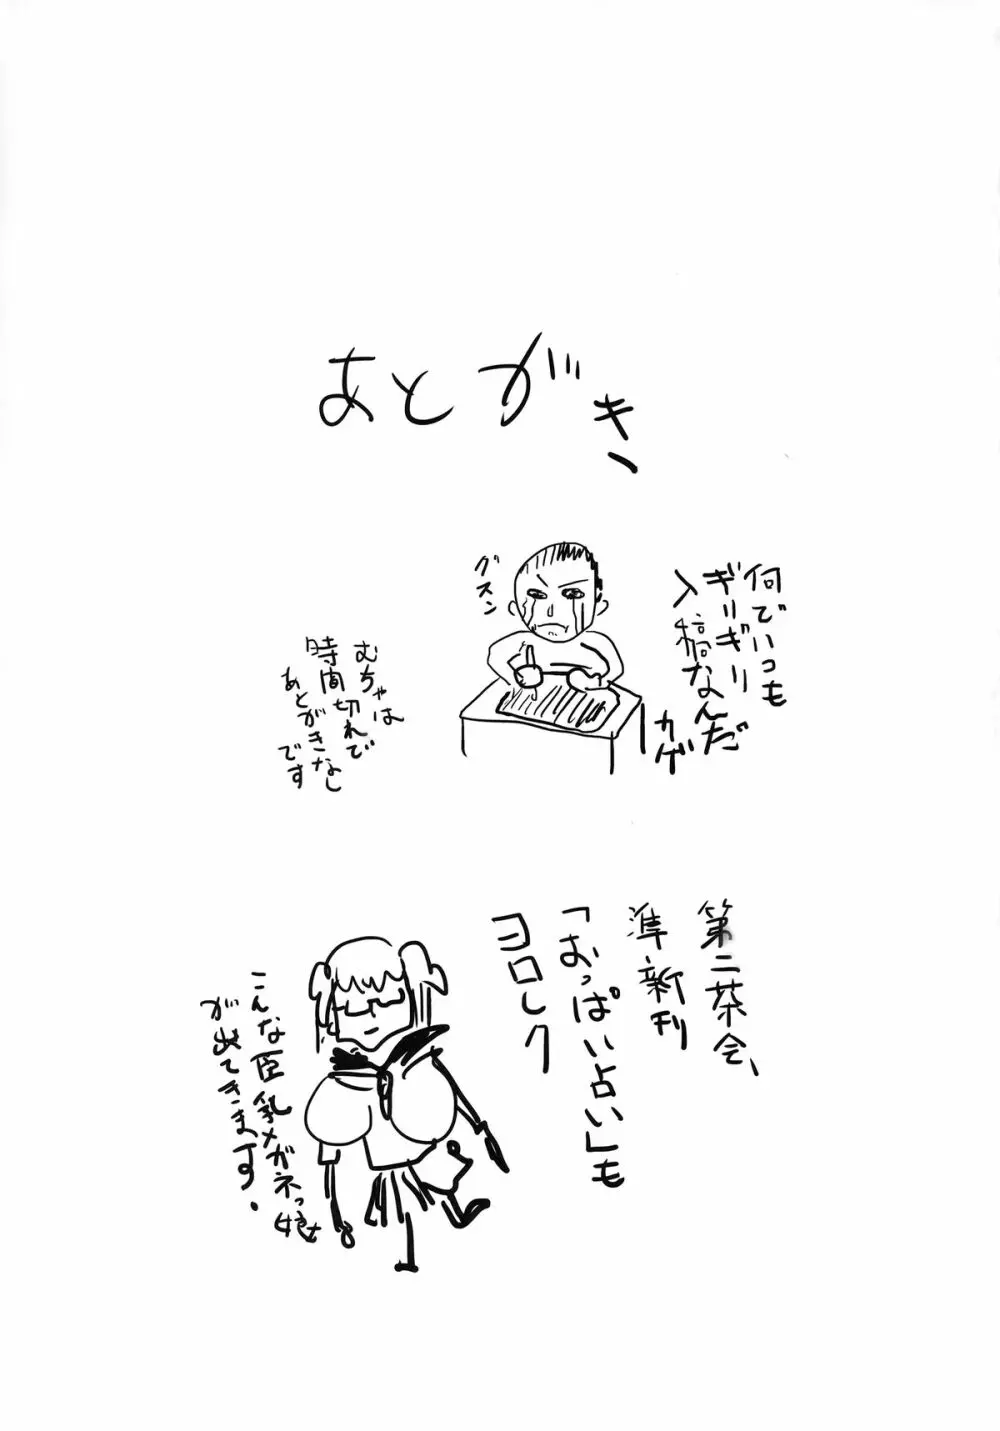 あとがき、
何でいつも
ギリギリ
入稿なんだ
カゲ
グスン
むちゃは
時間切れで
あとがきなし
です
第二茶会、
準・新刊
「おっぱい占い」も
ヨロシク
こんな臣乳メガネっ娘
が出てきます.